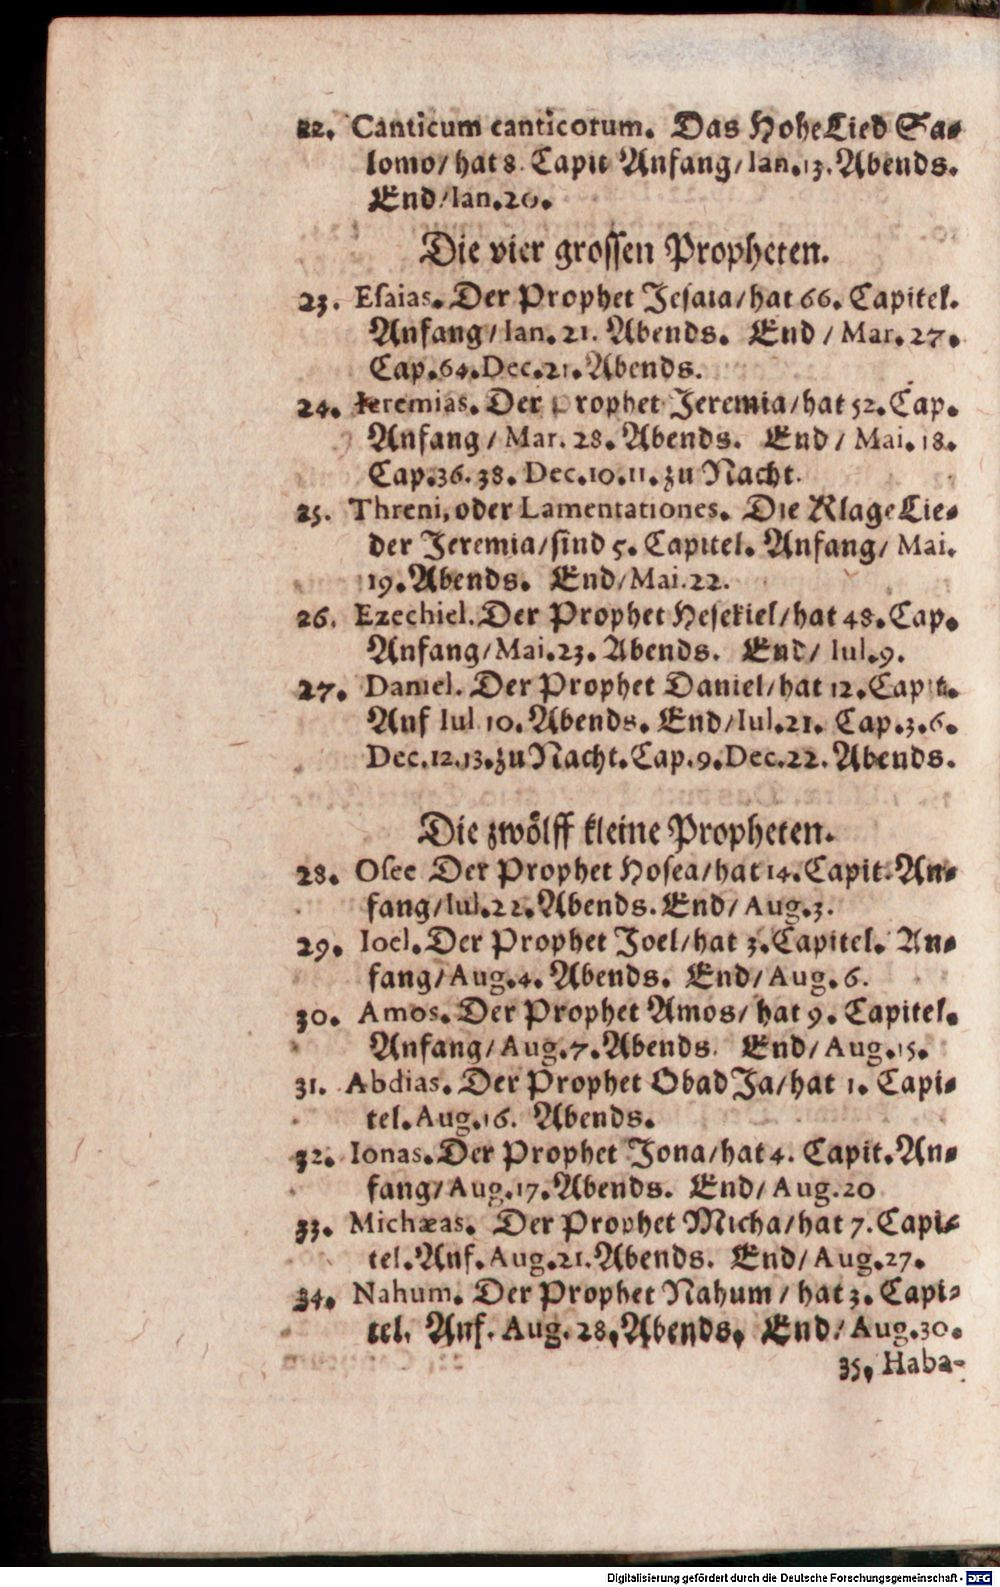 22. Canticum canticorum. Das HoheLied Sa⸗
lomo/ hat 8. Capit Anfang/ Ian.13. Abends.
End/ Ian.20.
Die vier grossen Propheten.
23. Esaias. Der Prophet Jesaia/ hat 66. Capitel.
Anfang/ Ian. 21. Abends. End / Mar. 27.
Cap.64. Dec.21. Abends.
24. Ieremias. Der Prophet Jeremia/ hat 52. Cap.
Anfang / Mar. 28. Abends. End / Mai. 18.
Cap.36. 38. Dec.10.11. zu Nacht.
25. Threni, oder Lamentationes. Die KlageLie⸗
der Jeremia/ sind 5. Capitel. Anfang/ Mai.
19. Abends. End/ Mai.22.
26. Ezechiel. Der Prophet Hesekiel/ hat 48. Cap.
Anfang/ Mai.23. Abends. End/ Iul.9.
27. Daniel. Der Prophet Daniel/ hat 12. Capit.
Anf Iul 10. Abends. End/ Iul.21. Cap.3.6.
Dec.12.13. zu Nacht. Cap.9. Dec.22. Abends.
Die zwölff kleine Propheten.
28. Osee Der Prophet Hosea/ hat 14. Capit. An⸗
fang/ Iul.22. Abends. End/ Aug.3.
29. Ioel. Der Prophet Joel/ hat 3. Capitel. An⸗
fang/ Aug.4. Abends. End/ Aug. 6.
30. Amos. Der Prophet Amos/ hat 9. Capitel.
Anfang/ Aug.7. Abends. End/ Aug.15.
31. Abdias. Der Prophet ObadJa/ hat 1. Capi⸗
tel. Aug.16. Abends.
32. Ionas. Der Prophet Jona/ hat 4. Capit. An⸗
fang/ Aug.17. Abends. End/ Aug.20
33. Michæas. Der Prophet Micha/ hat 7. Capi⸗
tel. Anf. Aug.21. Abends. End/ Aug.27.
34. Nahum. Der Prophet Nahum / hat 3. Capi⸗
tel. Anf. Aug. 28. Abends. End/ Aug.30.
35. Haba-
Digitalisierung gefördert durch die Deutsche Forschungsgemeinschaft - DFG